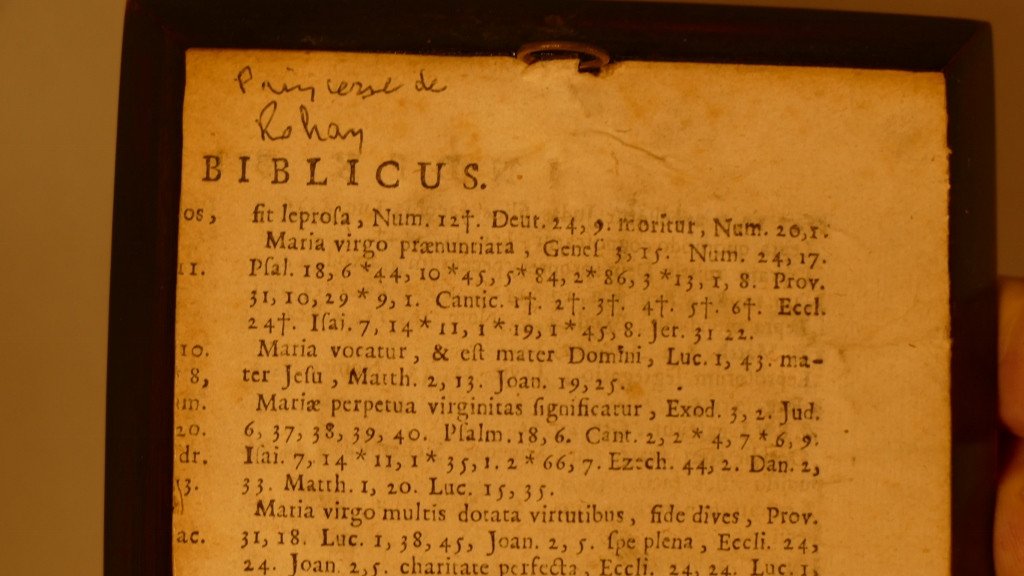 Princesse de
Rohan
BIBLICUS.
os, fit leprosa, Num. 12†. Deut. 24, 9. moritur, Num. 20, 1.
Maria virgo prænuntiata, Genes. 3, 15. Num. 24, 17.
11. Psal. 18, 6 * 44, 10 * 45, 5 * 84, 2 * 86, 3 * 13, 1, 8. Prov.
31, 10, 29 * 9, 1. Cantic. 1†. 2†. 3†. 4†. 5†. 6†. Eccl.
24†. Isai. 7, 14 * 11, 1 * 19, 1 * 45, 8. Jer. 31 22.
10. Maria vocatur, & est mater Domini, Luc. 1, 43. ma-
8, ter Jesu, Matth. 2, 13. Joan. 19, 25.
m. Mariæ perpetua virginitas significatur, Exod. 3, 2. Jud.
20. 6, 37, 38, 39, 40. Psalm. 18, 6. Cant. 2, 2 * 4, 7 * 6, 9.
dr. Isai. 7, 14 * 11, 1 * 35, 1. 2 * 66, 7. Ezech. 44, 2. Dan. 2,
3. 33. Matth. 1, 20. Luc. 15, 35.
Maria virgo multis dotata virtutibus, fide dives, Prov.
ac. 31, 18. Luc. 1, 38, 45, Joan. 2, 5. spe plena, Eccli. 24,
24. Joan. 2, 5. charitate perfecta, Eccli. 24, 24. Luc. 1,